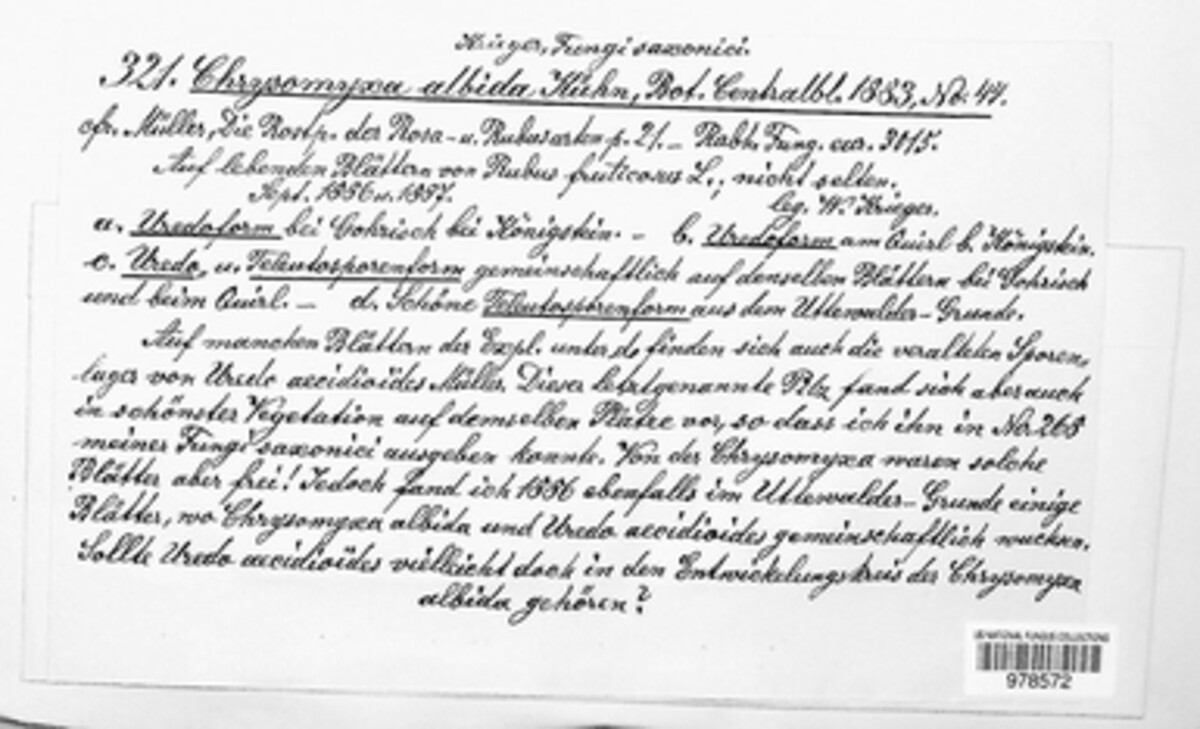 Krieger, Fungi saxonici.
321. Chrysomyxa albida Kühn, Bot. Centralbl. 1883, No. 44.
cfr. Müller, Die Rostp. der Rosa- u. Rubusarten p. 21. – Rabh. Fung. eur. 3015.
Auf lebenden Blättern von Rubus fruticosus L., nicht selten.
Sept. 1886 u. 1887. leg. W. Krieger.
a. Uredoform bei Gohrisch bei Königstein. – b. Uredoform am Quirl b. Königstein.
c. Uredo, u. Teleutosporenform gemeinschaftlich auf denselben Blättern bei Gohrisch
und beim Quirl. – d. Schöne Teleutosporenform aus dem Uttewalder-Grunde.
Auf manchen Blättern der Expl. unter d, finden sich auch die veralteten Sporen-
lager von Uredo aecidioïdes Müller. Dieser letztgenannte Pilz fand sich aber auch
in schönster Vegetation auf demselben Platze vor, so dass ich ihn in No. 268
meiner Fungi saxonici ausgeben konnte. Von der Chrysomyxa waren solche
Blätter aber frei! Jedoch fand ich 1886 ebenfalls im Uttewalder-Grunde einige
Blätter, wo Chrysomyxa albida und Uredo aecidioides gemeinschaftlich wuchsen.
Sollte Uredo aecidioïdes vielleicht doch in den Entwickelungskreis der Chrysomyxa
albida gehören?
US NATIONAL FUNGUS COLLECTIONS
978572